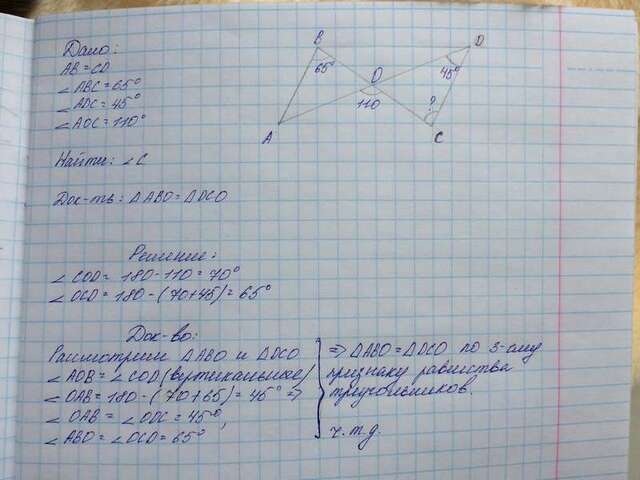 Дано:
AB = CD
∠ABC = 65°
∠ADC = 45°
∠AOC = 110°
Найти: ∠C
Док-ть: △ABO = △DCO
B
65°
O
110
D
45°
?
A
C
Решение:
∠COD = 180-110 = 70°
∠OCD = 180-(70+45) = 65°
Док-во:
Рассмотрим △ABO и △DCO
∠AOB = ∠COD (вутикальные)
∠OAB = 180-(70+65) = 45° ⇒
∠OAB = ∠ODC = 45°,
∠ABO = ∠OCD = 65°
⇒ △ABO = △DCO по 3-ему
признаку равенства
треугольников.
ч.т.д.